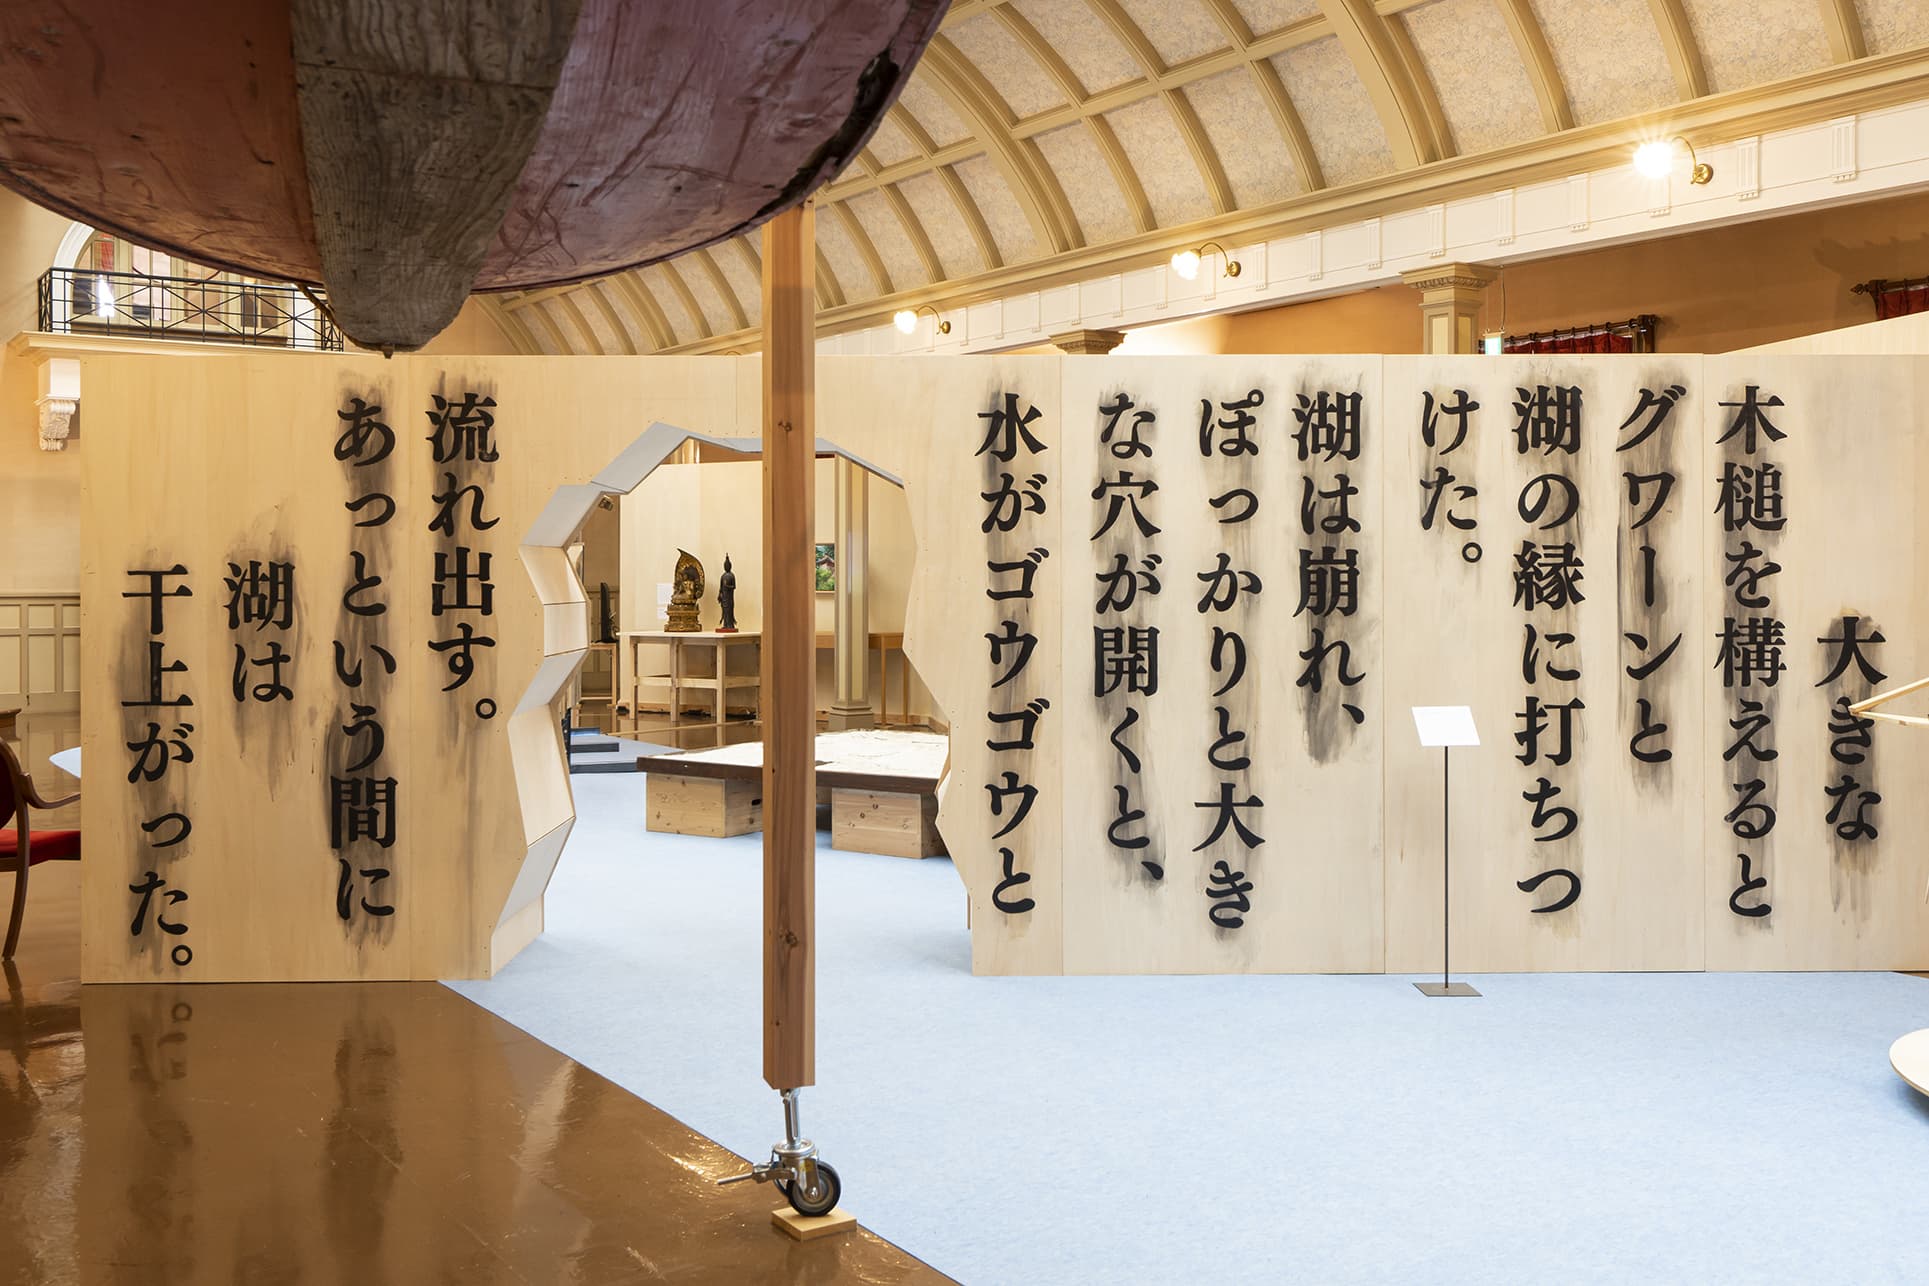 大きな
木槌を構えると
グワーンと
湖の縁に打ちつ
けた。
湖は崩れ、
ぽっかりと大き
な穴が開くと、
水がゴウゴウと
流れ出す。
あっという間に
湖は
干上がった。